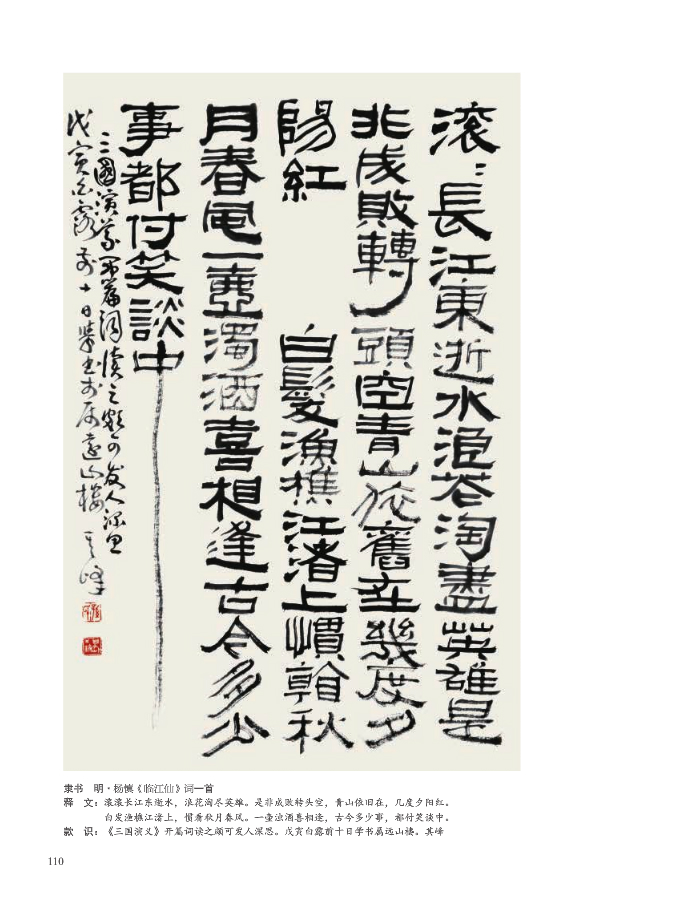 滚〻長江東逝水浪花淘盡英雄是
非成敗轉頭空青山依舊在幾度夕
陽紅　白髮漁樵江渚上慣看秋
月春風一壺濁酒喜相逢古今多少
事都付笑談中
三國演義開篇詞讀之頗可发人深思
戊寅白露前十日學书於属遠山樓 其峰
隶书　明·杨慎《临江仙》词一首
释　文：滚滚长江东逝水，浪花淘尽英雄。是非成败转头空，青山依旧在，几度夕阳红。
白发渔樵江渚上，惯看秋月春风。一壶浊酒喜相逢，古今多少事，都付笑谈中。
款　识：《三国演义》开篇词读之颇可发人深思。戊寅白露前十日学书属远山楼。其峰
110